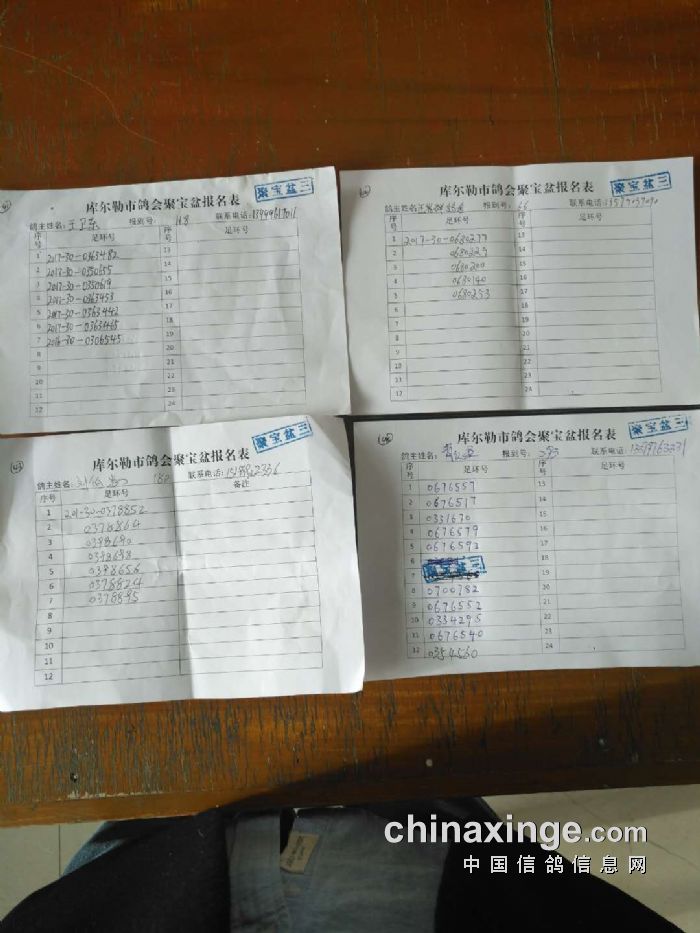 聚宝盆三
库尔勒市鸽会聚宝盆报名表
鸽主姓名: 王卫东 报到号: 118 联系电话:
序号 足环号 序号 足环号
1 2017-30-0363482 13
2 2017-30-0350655 14
3 2017-30-0350619 15
4 2017-30-0363453 16
5 2017-30-0363442 17
6 2017-30-0363465 18
7 2016-30-0306545 19
8 20
9 21
10 22
11 23
12 24
聚宝盆三
库尔勒市鸽会聚宝盆报名表
鸽主姓名: 报到号: 66 联系电话:
序号 足环号 序号 足环号
1 2017-30-0680277 13
2 0680229 14
3 0680200 15
4 0680140 16
5 0680253 17
6 18
7 19
8 20
9 21
10 22
11 23
12 24
聚宝盆三
库尔勒市鸽会聚宝盆报名表
鸽主姓名: 联系电话:
序号 足环号 备注
1 0378852
2 0378864
3 0398690
4 0398698
5 0398656
6 0378824
7 0378895
8
9
10
11
12
聚宝盆三
库尔勒市鸽会聚宝盆报名表
鸽主姓名: 报到号: 293 联系电话:
序号 足环号 序号 足环号
1 0676557 13
2 0676517 14
3 0331670 15
4 0676579 16
5 0676593 17
6 18
7 聚宝盆三 19
8 0700782 20
9 0676552 21
10 0334295 22
11 0676540 23
12 0354560 24
chinaxinge.com
中国信鸽信息网